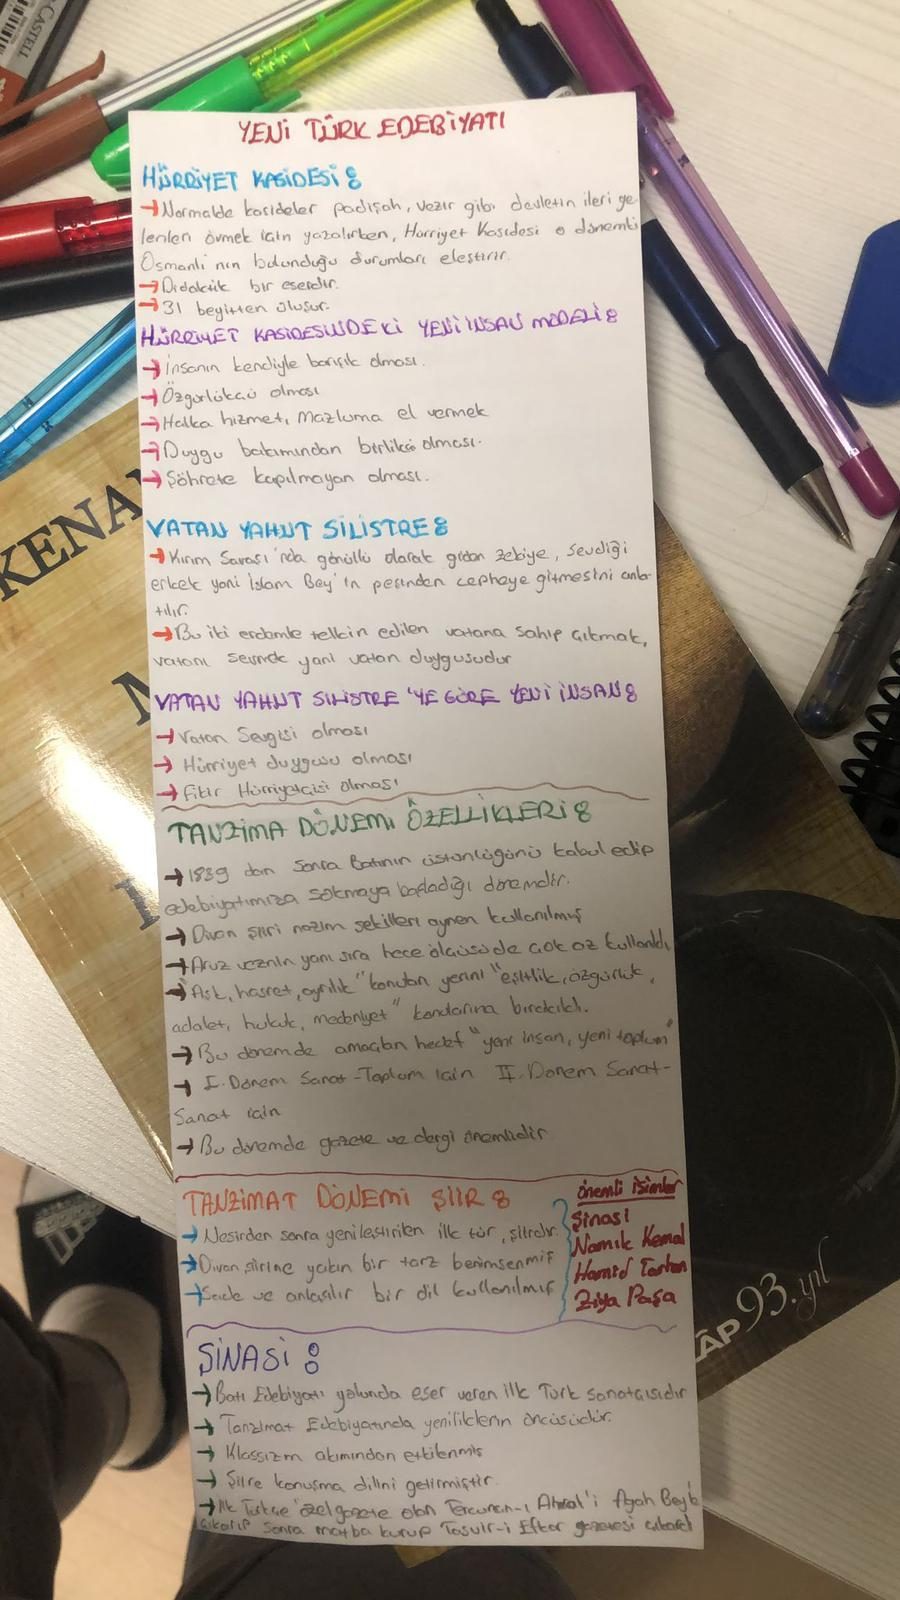 YENİ TÜRK EDEBİYATI
HÜRRİYET KASİDESİ:
→Normalde kasideler padişah, vezir gibi devletin ileri ge-
lenleri övmek için yazılırken, Hürriyet Kasidesi o dönemki
Osmanlı'nın bulunduğu durumları eleştirir.
→Didaktik bir eserdir.
→31 beyitten oluşur.
HÜRRİYET KASİDESİNDEKİ YENİ İNSAN MODELİ:
→İnsanın kendiyle barışık olması.
→Özgürlükçü olması
→Halka hizmet, Mazluma el vermek
→Duygu bakımından birlikçi olması.
→Şöhrete kapılmayan olması.
VATAN YAHUT SİLİSTRE:
→Kırım Savaşı'nda gönüllü olarak giden zekiye, sevdiği
erkek yani İslam Bey'in peşinden cepheye gitmesini anla-
tılır.
→Bu iki erdemle telkin edilen vatana sahip çıkmak,
vatanı sevmek yani vatan duygusudur
VATAN YAHUT SİLİSTRE'YE GÖRE YENİ İNSAN:
→Vatan Sevgisi olması
→Hürriyet duygusu olması
→Fikir Hürriyetçisi olması
TANZİMA DÖNEMİ ÖZELLİKLERİ:
→1839 dan sonra Batının üstünlüğünü kabul edip
edebiyatımıza sokmaya başladığı dönemdir.
→Divan şiiri nazım şekilleri aynen kullanılmış
→Aruz veznin yanı sıra hece ölçüsü de çok az kullanıldı
→"Aşk, hasret, ayrılık" konuları yerini "eşitlik, özgürlük,
adalet, hukuk, medeniyet" konularına bırakıldı.
→Bu dönemde amaçlan hedef "yeni insan, yeni toplum"
→I. Dönem Sanat-Toplum için II. Dönem Sanat-
Sanat için
→Bu dönemde gazete ve dergi önemlidir
TANZİMAT DÖNEMİ ŞİİR:
→Nesirden sonra yenileştirilen ilk tür, şiirdir.
→Divan şiirine yakın bir tarz benimsenmiş
→Sade ve anlaşılır bir dil kullanılmış
önemli isimler
Şinasi
Namık Kemal
Hamid Tarhan
Ziya Paşa
ŞİNASİ:
→Batı Edebiyatı yolunda eser veren ilk Türk sanatçısıdır
→Tanzimat Edebiyatında yeniliklerin öncüsüdür.
→Klasisizm akımından etkilenmiş
→Şiire konuşma dilini getirmiştir.
→İlk Türkçe özel gazete olan Tercüman-ı Ahval'i Agah Bey'le
çıkarıp sonra matba kurup Tasvir-i Efkar gazetesi çıkardı
KENA
ÂP 93.yıl
CASTELL